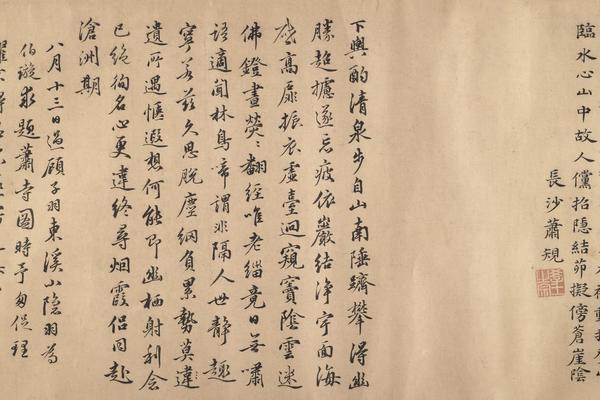 臨水心山中故人儻招隱結茆擬傍蒼崖陰
長沙蕭規
下輿酌清泉步自山南陲躋攀得幽
勝超攄遂忘疲依巖結淨宇面海
啓高扉振衣虛臺迥窺竇陰雲迷
佛鐙晝熒〻翻經唯老緇竟日無嘯
語適聞林鳥啼謂非隔人世靜趣
寧若茲久思脫塵網負累勢莫違
遺所遇愜遐想何能即幽栖射利念
已絶徇名心更違終尋烟霞侶同赴
滄洲期
八月十三日過顧子羽東溪山陰羽為
伯璇求題蕭寺圖時予匆促理